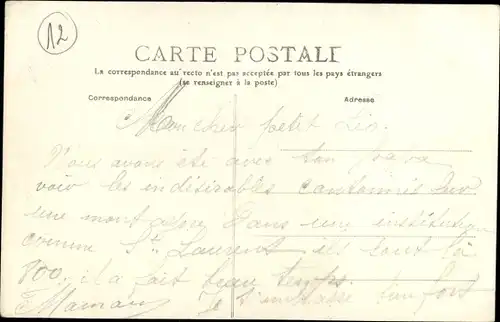 12
CARTE POSTALE
La correspondance au recto n'est pas acceptée par tous les pays étrangers
(se renseigner à la poste)
Correspondance
Adresse
Mon cher petit
Nous avons été avec ton
voir les indésirables cantonnés sur
une mont dans une institution
comme St Laurent ils sont là
800. il a fait beau temps.
Maman Je t'embrasse bien fort